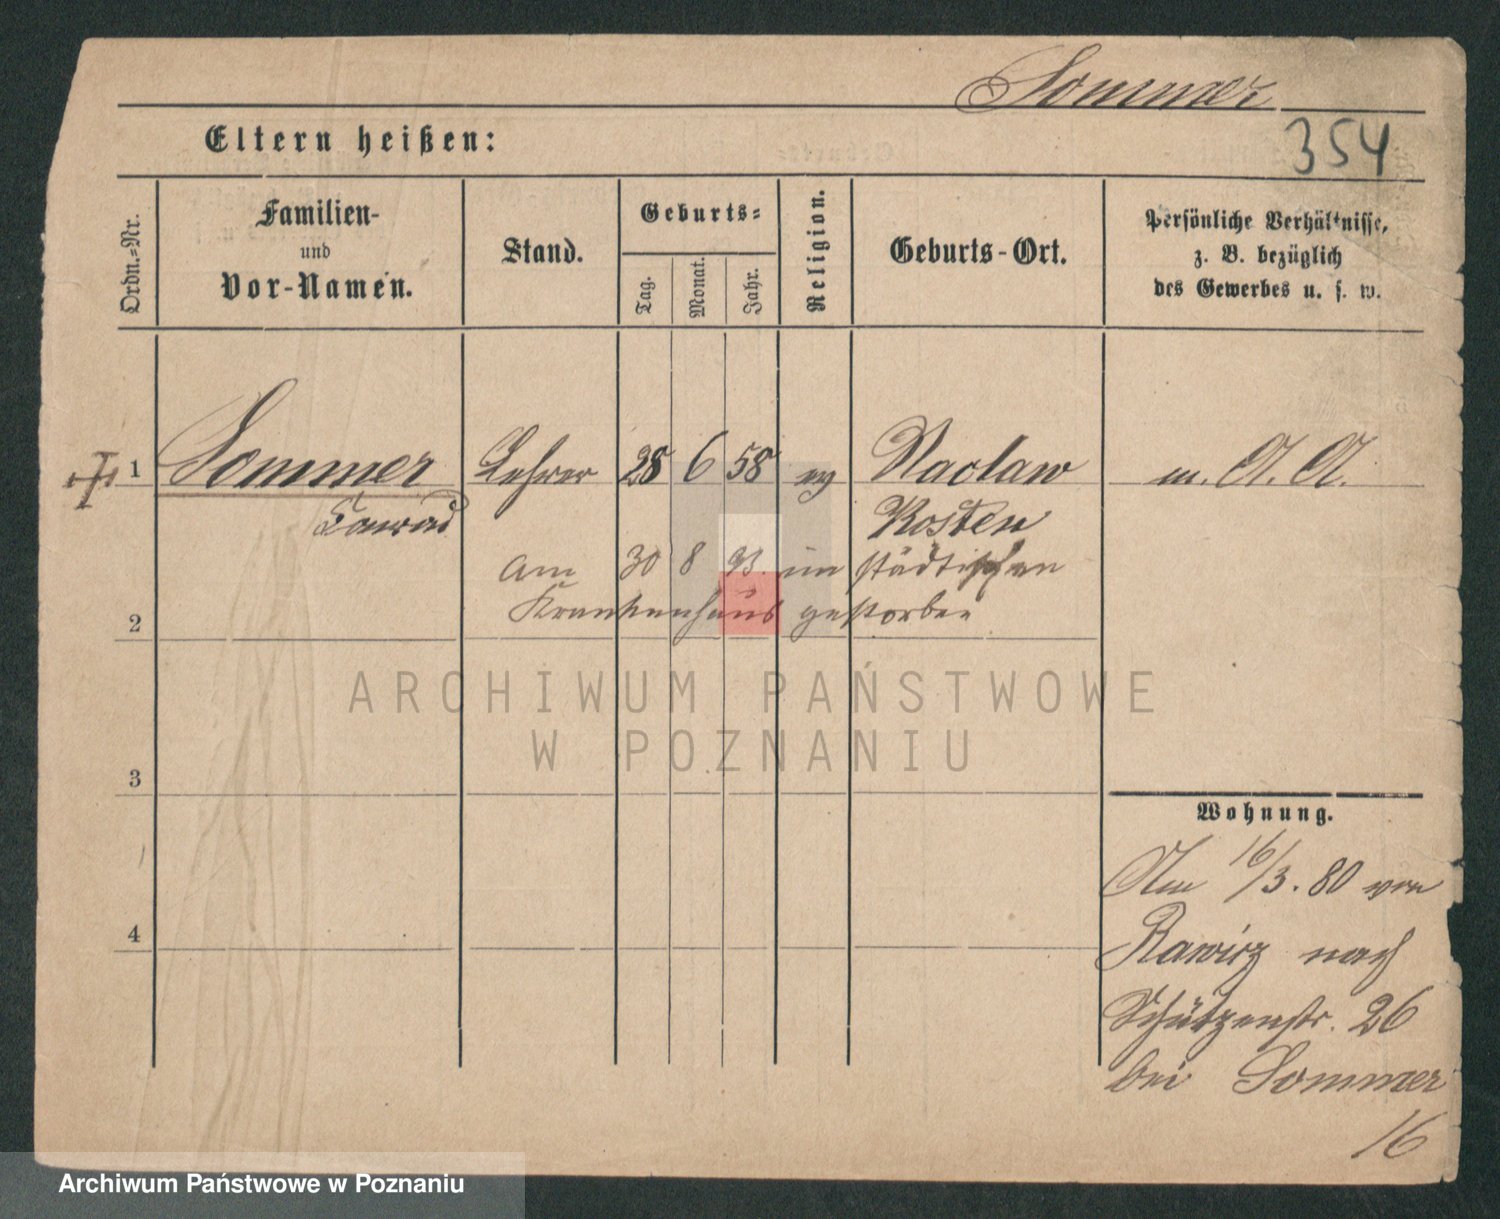 Sommer
354
Eltern heißen:
Ordn.-Nr.
Familien-
und
Vor-Namen.
Stand.
Geburts-
Tag.
Monat.
Jahr.
Religion.
Geburts-Ort.
Persönliche Verhältnisse,
z. B. bezüglich
des Gewerbes u. s. w.
1 Sommer Lehrer 28 6 58 ev Naclaw m. A. A.
Conrad Kosten
am 30 8 93 im städtischen
Krankenhaus gestorben
2
ARCHIWUM PAŃSTWOWE
W POZNANIU
3
Wohnung.
Am 16/3. 80 von
4
Rawicz nach
Schützenstr. 26
bei Sommer
16
Archiwum Państwowe w Poznaniu